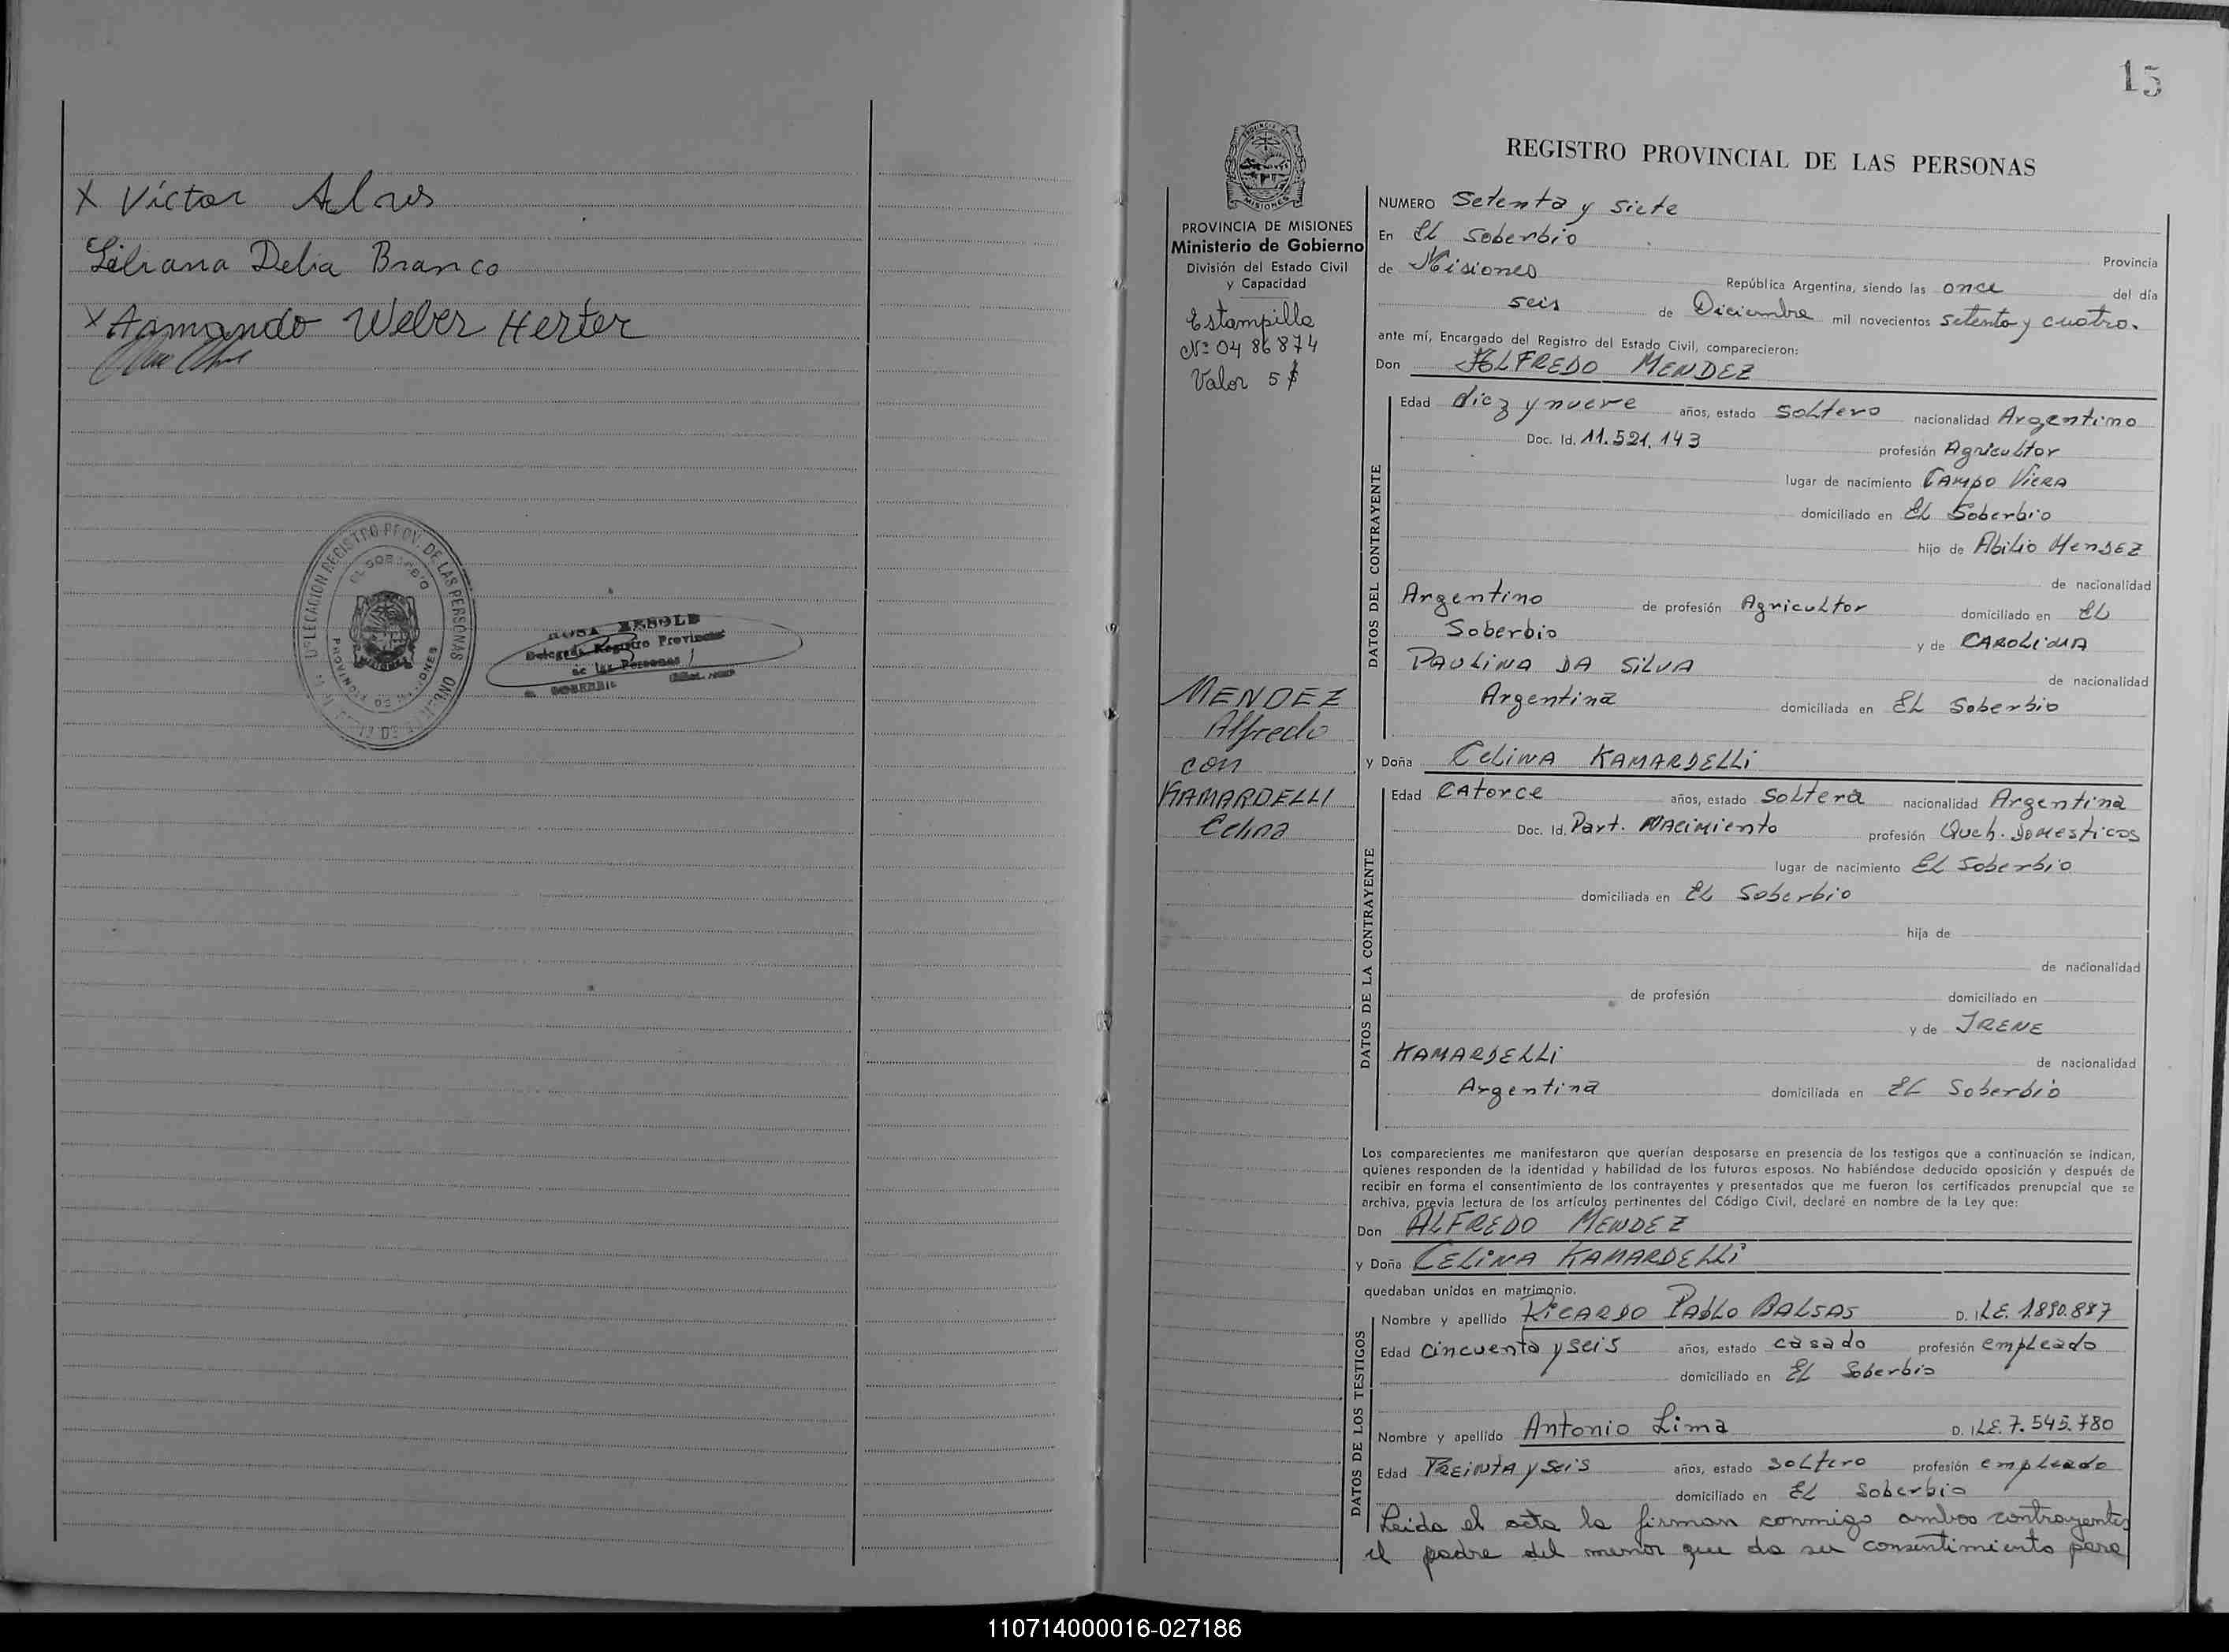 X Víctor Alves
Liliana Delia Branco
X Armando Weber Herter
DELEGACION REGISTRO PROV. DE LAS PERSONAS
EL SOBERBIO
PROVINCIA DE MISIONES
ROSA
Delegada Registro Provincial
de las Personas
SOBERBIO
15
PROVINCIA DE MISIONES
Ministerio de Gobierno
División del Estado Civil
y Capacidad
Estampilla
Nº 0486874
Valor 5 $
MENDEZ
Alfredo
con
KAMARDELLI
Celina
REGISTRO PROVINCIAL DE LAS PERSONAS
NUMERO Setenta y siete
En EL Soberbio
Provincia
de Misiones República Argentina, siendo las once del día
seis de Diciembre mil novecientos setenta y cuatro.
ante mí, Encargado del Registro del Estado Civil, comparecieron:
Don ALFREDO MENDEZ
DATOS DEL CONTRAYENTE
Edad diez y nueve años, estado soltero nacionalidad Argentino
Doc. Id. 11.521.143 profesión Agricultor
lugar de nacimiento CAMPO VIERA
domiciliado en EL Soberbio
hijo de Abilio MENDEZ
de nacionalidad
Argentino de profesión Agricultor domiciliado en EL
Soberbio y de CAROLINA
PAULINA DA SILVA de nacionalidad
Argentina domiciliada en EL Soberbio
y Doña CELINA KAMARDELLI
DATOS DE LA CONTRAYENTE
Edad CAtorce años, estado Soltera nacionalidad Argentina
Doc. Id. Part. NAcimiento profesión Queh. DOMESticos
lugar de nacimiento EL Soberbio
domiciliada en EL Soberbio
hija de
de nacionalidad
de profesión domiciliado en
y de IRENE
KAMARDELLi de nacionalidad
Argentina domiciliada en EL Soberbio
Los comparecientes me manifestaron que querían desposarse en presencia de los testigos que a continuación se indican,
quienes responden de la identidad y habilidad de los futuros esposos. No habiéndose deducido oposición y después de
recibir en forma el consentimiento de los contrayentes y presentados que me fueron los certificados prenupcial que se
archiva, previa lectura de los artículos pertinentes del Código Civil, declaré en nombre de la Ley que:
Don ALFREDO MENDEZ
y Doña CELINA KAMARDELLi
quedaban unidos en matrimonio.
DATOS DE LOS TESTIGOS
Nombre y apellido RICARDO PAbLO BALSAS D. I LE. 1.890.887
Edad Cincuenta y seis años, estado casado profesión empleado
domiciliado en EL Soberbio
Nombre y apellido Antonio Lima D. I LE. 7.545.780
Edad TREINTA y seis años, estado soltero profesión empleado
domiciliado en EL Soberbio
Leida el acta la firman conmigo ambos contrayentes
el padre del menor que da su consentimiento para
110714000016-027186